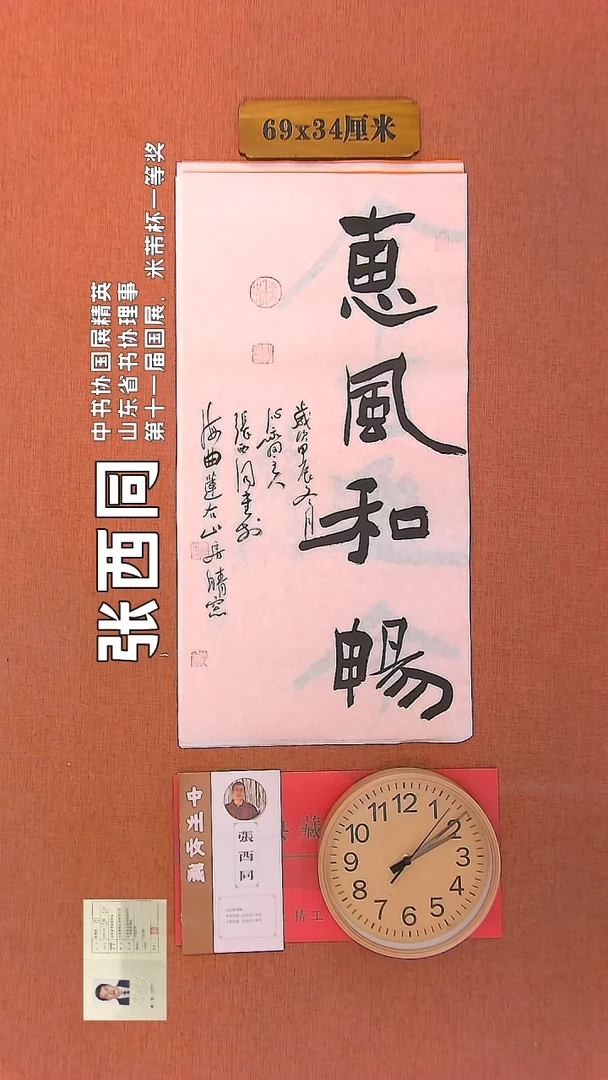 69x34厘米
惠風和暢
歲次甲辰冬月
沁齋主人
張西同書於
海曲蓮石山房晴窓
张西同
中书协国展精英
山东省书协理事
第十一届国展、米芾杯一等奖
張西同
藏
精工
12
1
2
3
4
5
6
7
8
9
10
11